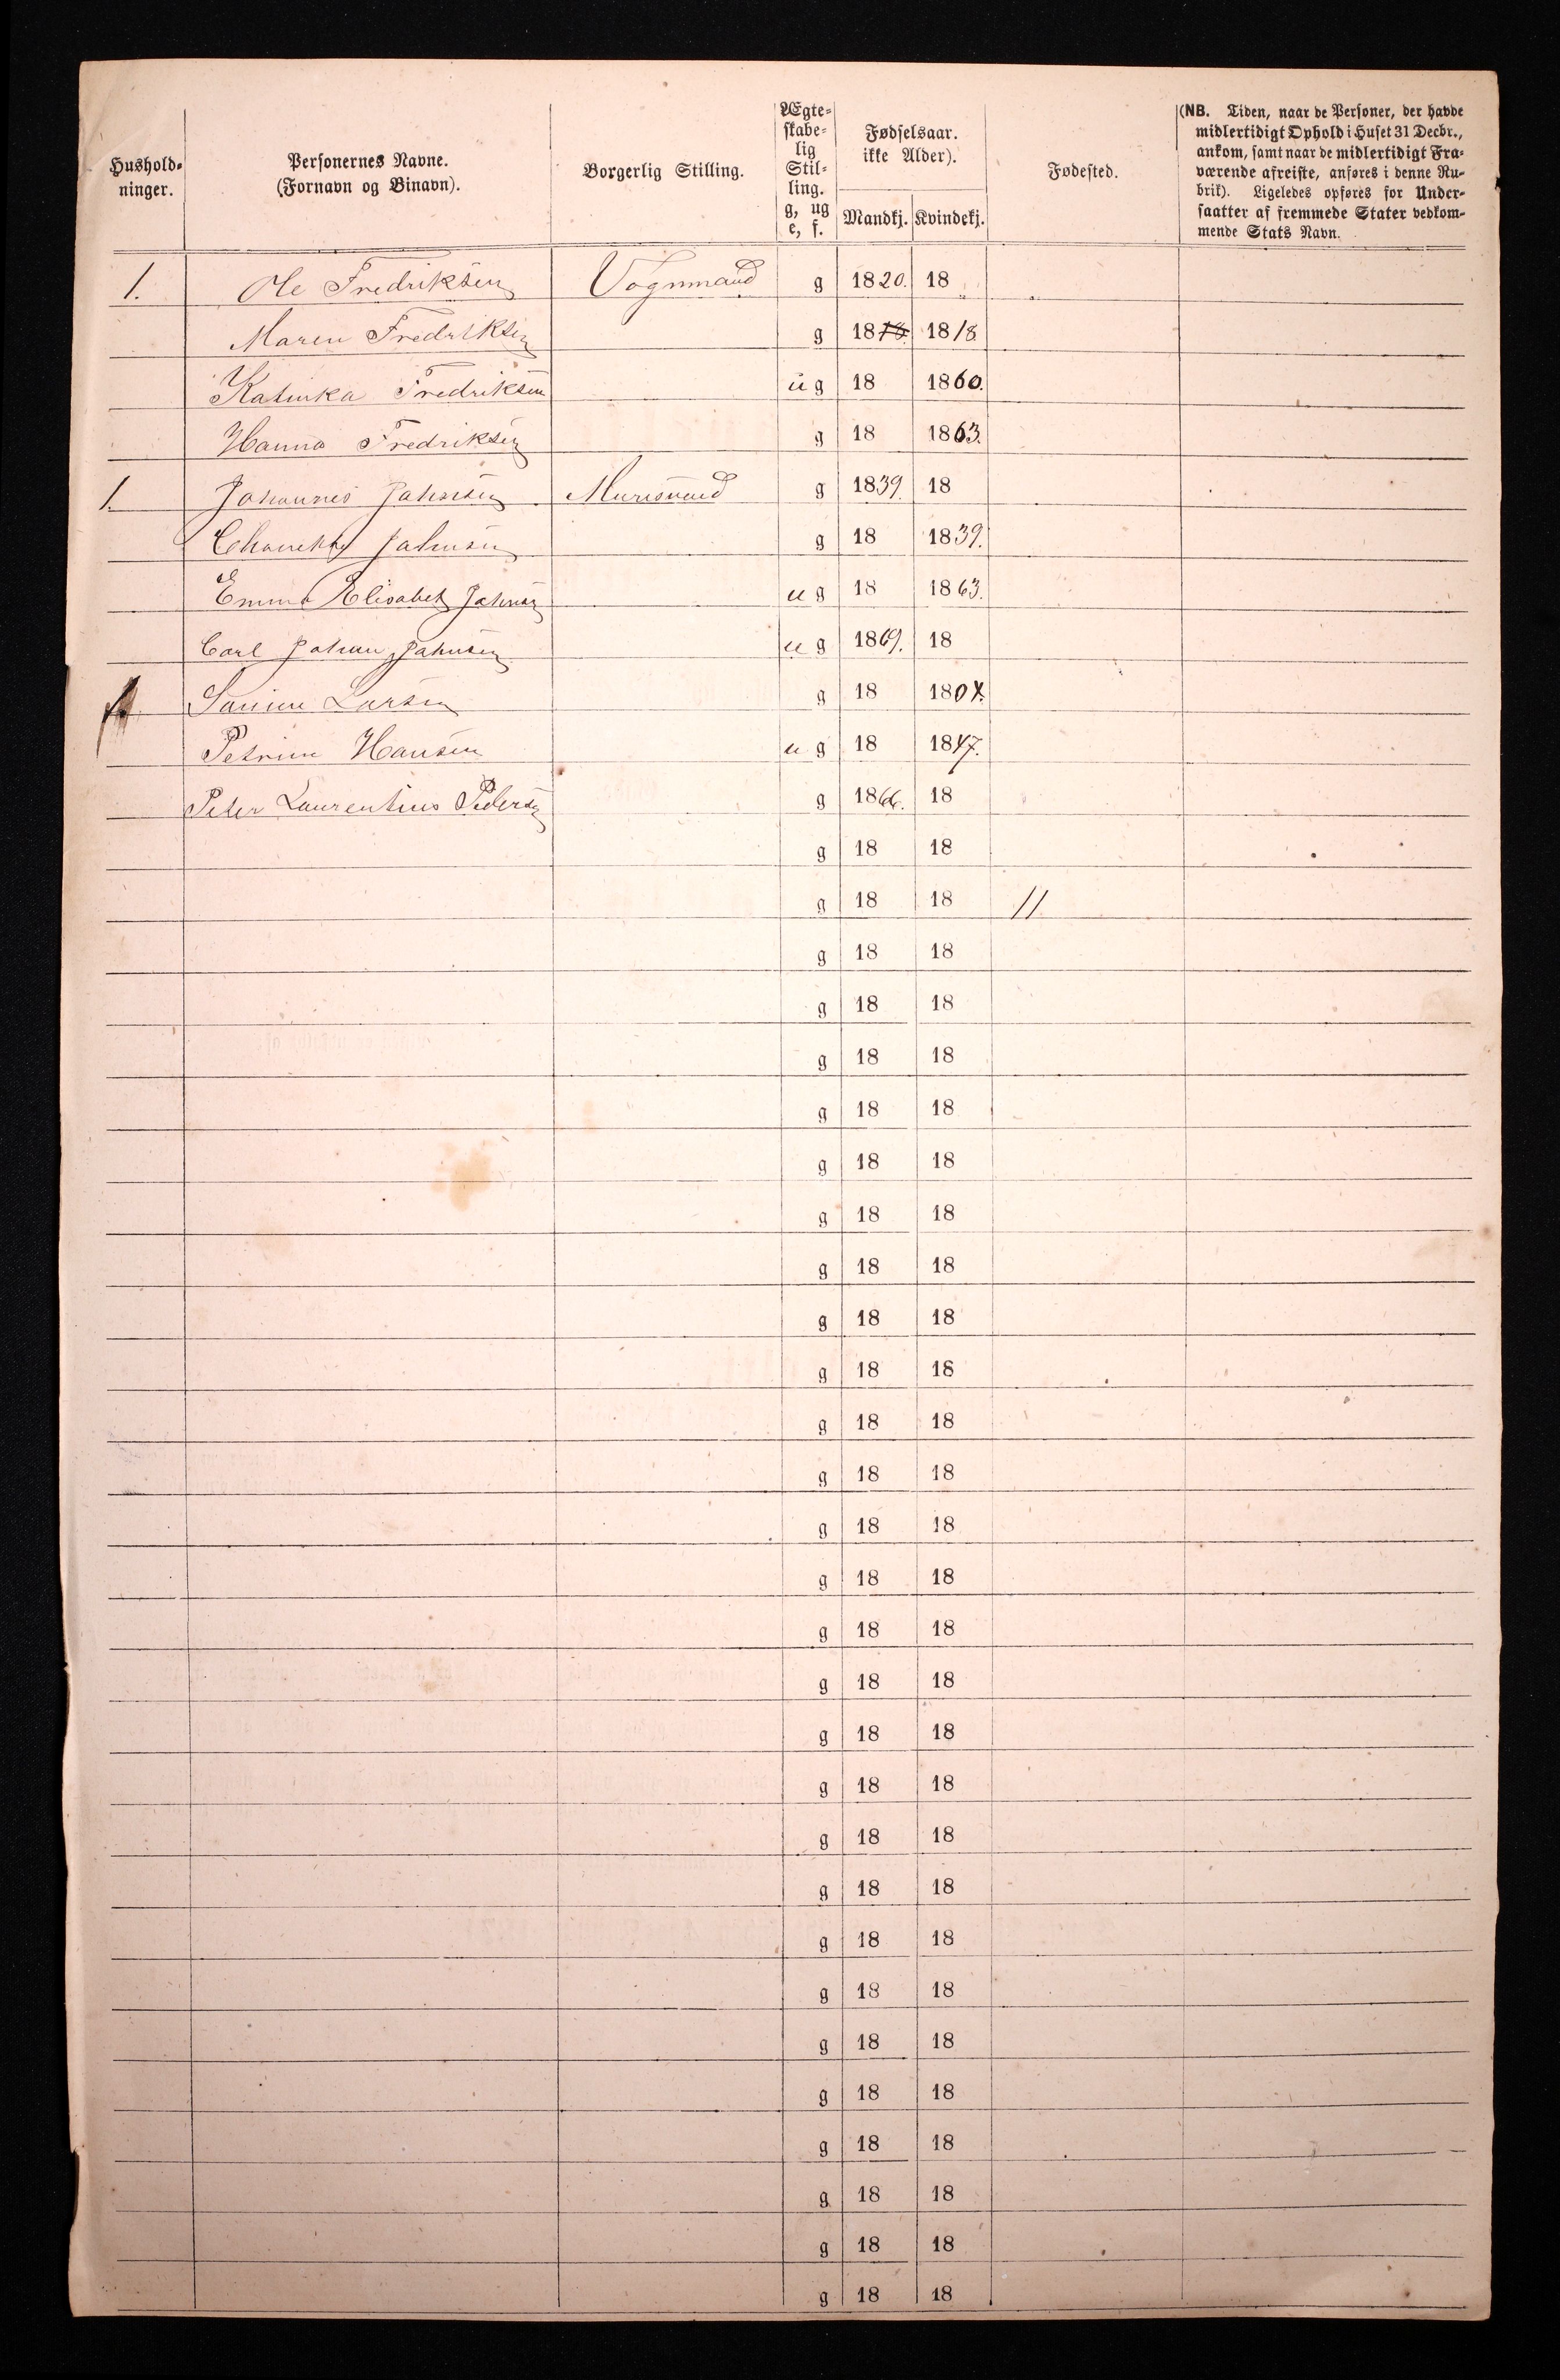 Hushold-
ninger.
Personernes Navne.
(Fornavn og Binavn).
Borgerlig Stilling.
Ægte-
skabe-
lig
Stil-
ling.
g, ug
e, f.
Fødselsaar.
ikke Alder).
Mandkj. Kvindekj.
Fødested.
(NB. Tiden, naar de Personer, der havde
midlertidigt Ophold i Huset 31 Decbr.,
ankom, samt naar de midlertidigt Fra-
værende afreiste, anføres i denne Ru-
brik). Ligeledes opføres for Under-
saatter af fremmede Stater vedkom-
mende Stats Navn.
1. Ole Fredriksen Vognmand g 1820. 18
Maren Fredriksen g 1818. 1818.
Katinka Fredriksen ug 18 1860.
Hanna Fredriksen g 18 1863.
1. Johannes Johnsen Muresvend g 1839. 18
Johnsen g 18 1839.
Emma Elisabet Johnsen ug 18 1863.
Carl Johan Johnsen ug 1869. 18
Larsen g 18
Petrine Hansen ug 18 1847.
Peter Laurentius Pedersen g 1866. 18
g 18 18
g 18 18 11
g 18 18
g 18 18
g 18 18
g 18 18
g 18 18
g 18 18
g 18 18
g 18 18
g 18 18
g 18 18
g 18 18
g 18 18
g 18 18
g 18 18
g 18 18
g 18 18
g 18 18
g 18 18
g 18 18
g 18 18
g 18 18
g 18 18
g 18 18
g 18 18
g 18 18
g 18 18
g 18 18